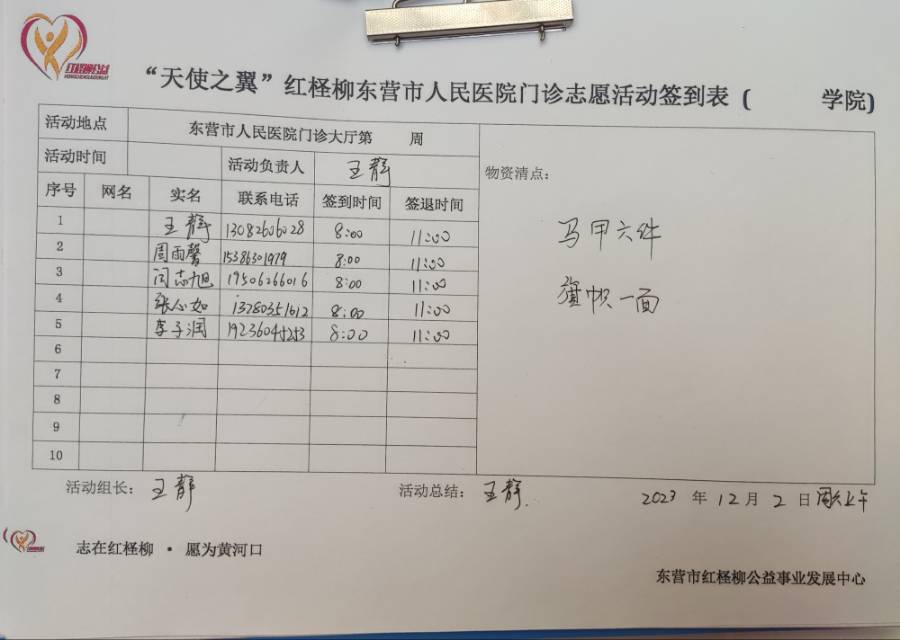 红柽柳公益
“天使之翼”红柽柳东营市人民医院门诊志愿活动签到表 ( 学院)
活动地点 东营市人民医院门诊大厅第 周
活动时间 活动负责人 王静
物资清点：
序号 网名 实名 联系电话 签到时间 签退时间
1 王静 13082606028 8:00 11:00
2 周雨馨 15386301979 8:00 11:00
3 闫志旭 19506266016 8:00 11:00
4 张心如 13780351612 8:00 11:00
5 李子润 19236045253 8:00 11:00
6
7
8
9
10
马甲六件
旗帜一面
活动组长： 王静 活动总结： 王静. 2023 年 12 月 2 日 周六上午
志在红柽柳 · 愿为黄河口
东营市红柽柳公益事业发展中心